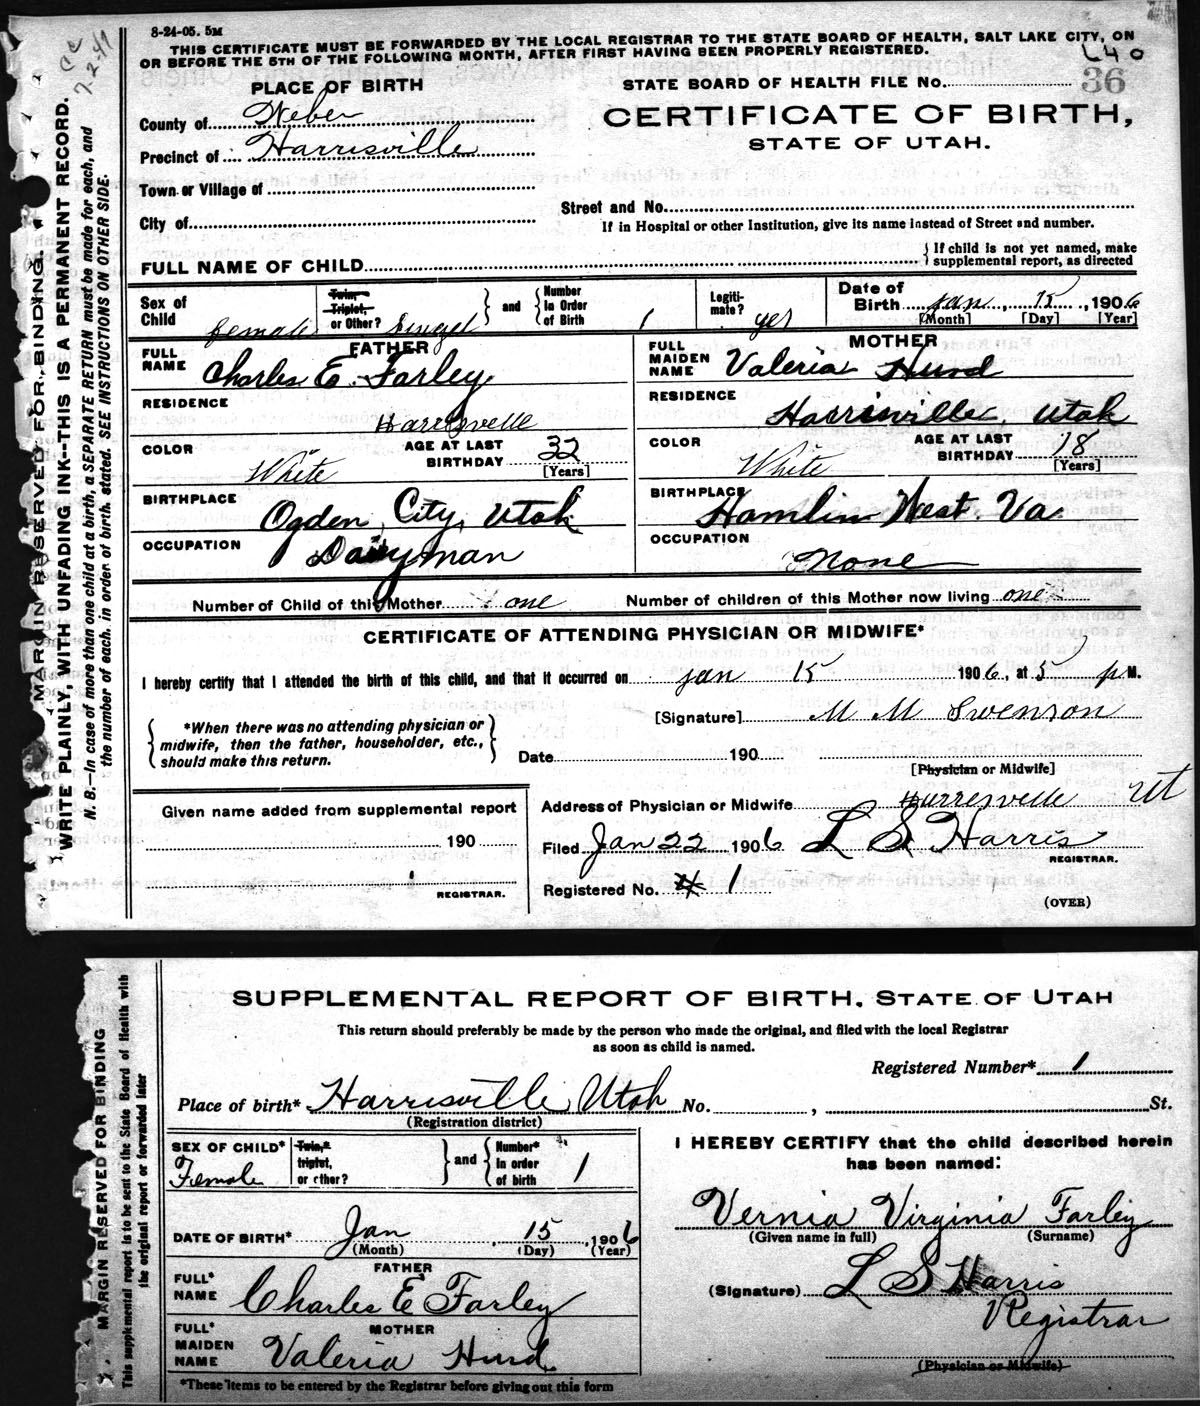 8-24-05. 5M
THIS CERTIFICATE MUST BE FORWARDED BY THE LOCAL REGISTRAR TO THE STATE BOARD OF HEALTH, SALT LAKE CITY, ON
OR BEFORE THE 5TH OF THE FOLLOWING MONTH, AFTER FIRST HAVING BEEN PROPERLY REGISTERED.
PLACE OF BIRTH
STATE BOARD OF HEALTH FILE No. 36
County of Weber
CERTIFICATE OF BIRTH,
Precinct of Harrisville
STATE OF UTAH.
Town or Village of
Street and No.
City of
If in Hospital or other Institution, give its name instead of Street and number.
FULL NAME OF CHILD
If child is not yet named, make
supplemental report, as directed
Sex of Child female
Twin, Triplet, or Other? Singel
and
Number in Order of Birth 1
Legiti-mate? yes
Date of Birth Jan 15, 1906
[Month] [Day] [Year]
FATHER
FULL NAME Charles E. Farley
MOTHER
FULL MAIDEN NAME Valeria Hurd
RESIDENCE Harresvelle
RESIDENCE Harrisville, Utah
COLOR White
AGE AT LAST BIRTHDAY 32
[Years]
COLOR White
AGE AT LAST BIRTHDAY 18
[Years]
BIRTHPLACE Ogden City, Utah
BIRTHPLACE Hamlin West. Va
OCCUPATION Dairyman
OCCUPATION None
Number of Child of this Mother one
Number of children of this Mother now living one
CERTIFICATE OF ATTENDING PHYSICIAN OR MIDWIFE*
I hereby certify that I attended the birth of this child, and that it occurred on Jan 15 1906, at 5 p M.
*When there was no attending physician or
midwife, then the father, householder, etc.,
should make this return.
[Signature] M M Swenson
Date 190
[Physician or Midwife]
Given name added from supplemental report
190
REGISTRAR.
Address of Physician or Midwife Harresvelle Ut
Filed Jan 22 1906 L S Harris
REGISTRAR.
Registered No. 1
(OVER)
MARGIN RESERVED FOR BINDING.
WRITE PLAINLY, WITH UNFADING INK--THIS IS A PERMANENT RECORD.
N. B.—In case of more than one child at a birth, a SEPARATE RETURN must be made for each, and
the number of each, in order of birth, stated. SEE INSTRUCTIONS ON OTHER SIDE.
SUPPLEMENTAL REPORT OF BIRTH, STATE OF UTAH
This return should preferably be made by the person who made the original, and filed with the local Registrar
as soon as child is named.
Registered Number* 1
Place of birth* Harrisville Utah No. , St.
(Registration district)
SEX OF CHILD* Female
Twin,* triplet, or other?
and
Number* in order of birth 1
DATE OF BIRTH* Jan, 15, 1906
(Month) (Day) (Year)
FATHER
FULL* NAME Charles E Farley
MOTHER
FULL* MAIDEN NAME Valeria Hurd
*These items to be entered by the Registrar before giving out this form
I HEREBY CERTIFY that the child described herein
has been named:
Vernia Virginia Farley
(Given name in full) (Surname)
(Signature) L S Harris
Registrar
(Physician or Midwife)
MARGIN RESERVED FOR BINDING
This supplemental report is to be sent to the State Board of Health with
the original report or forwarded later